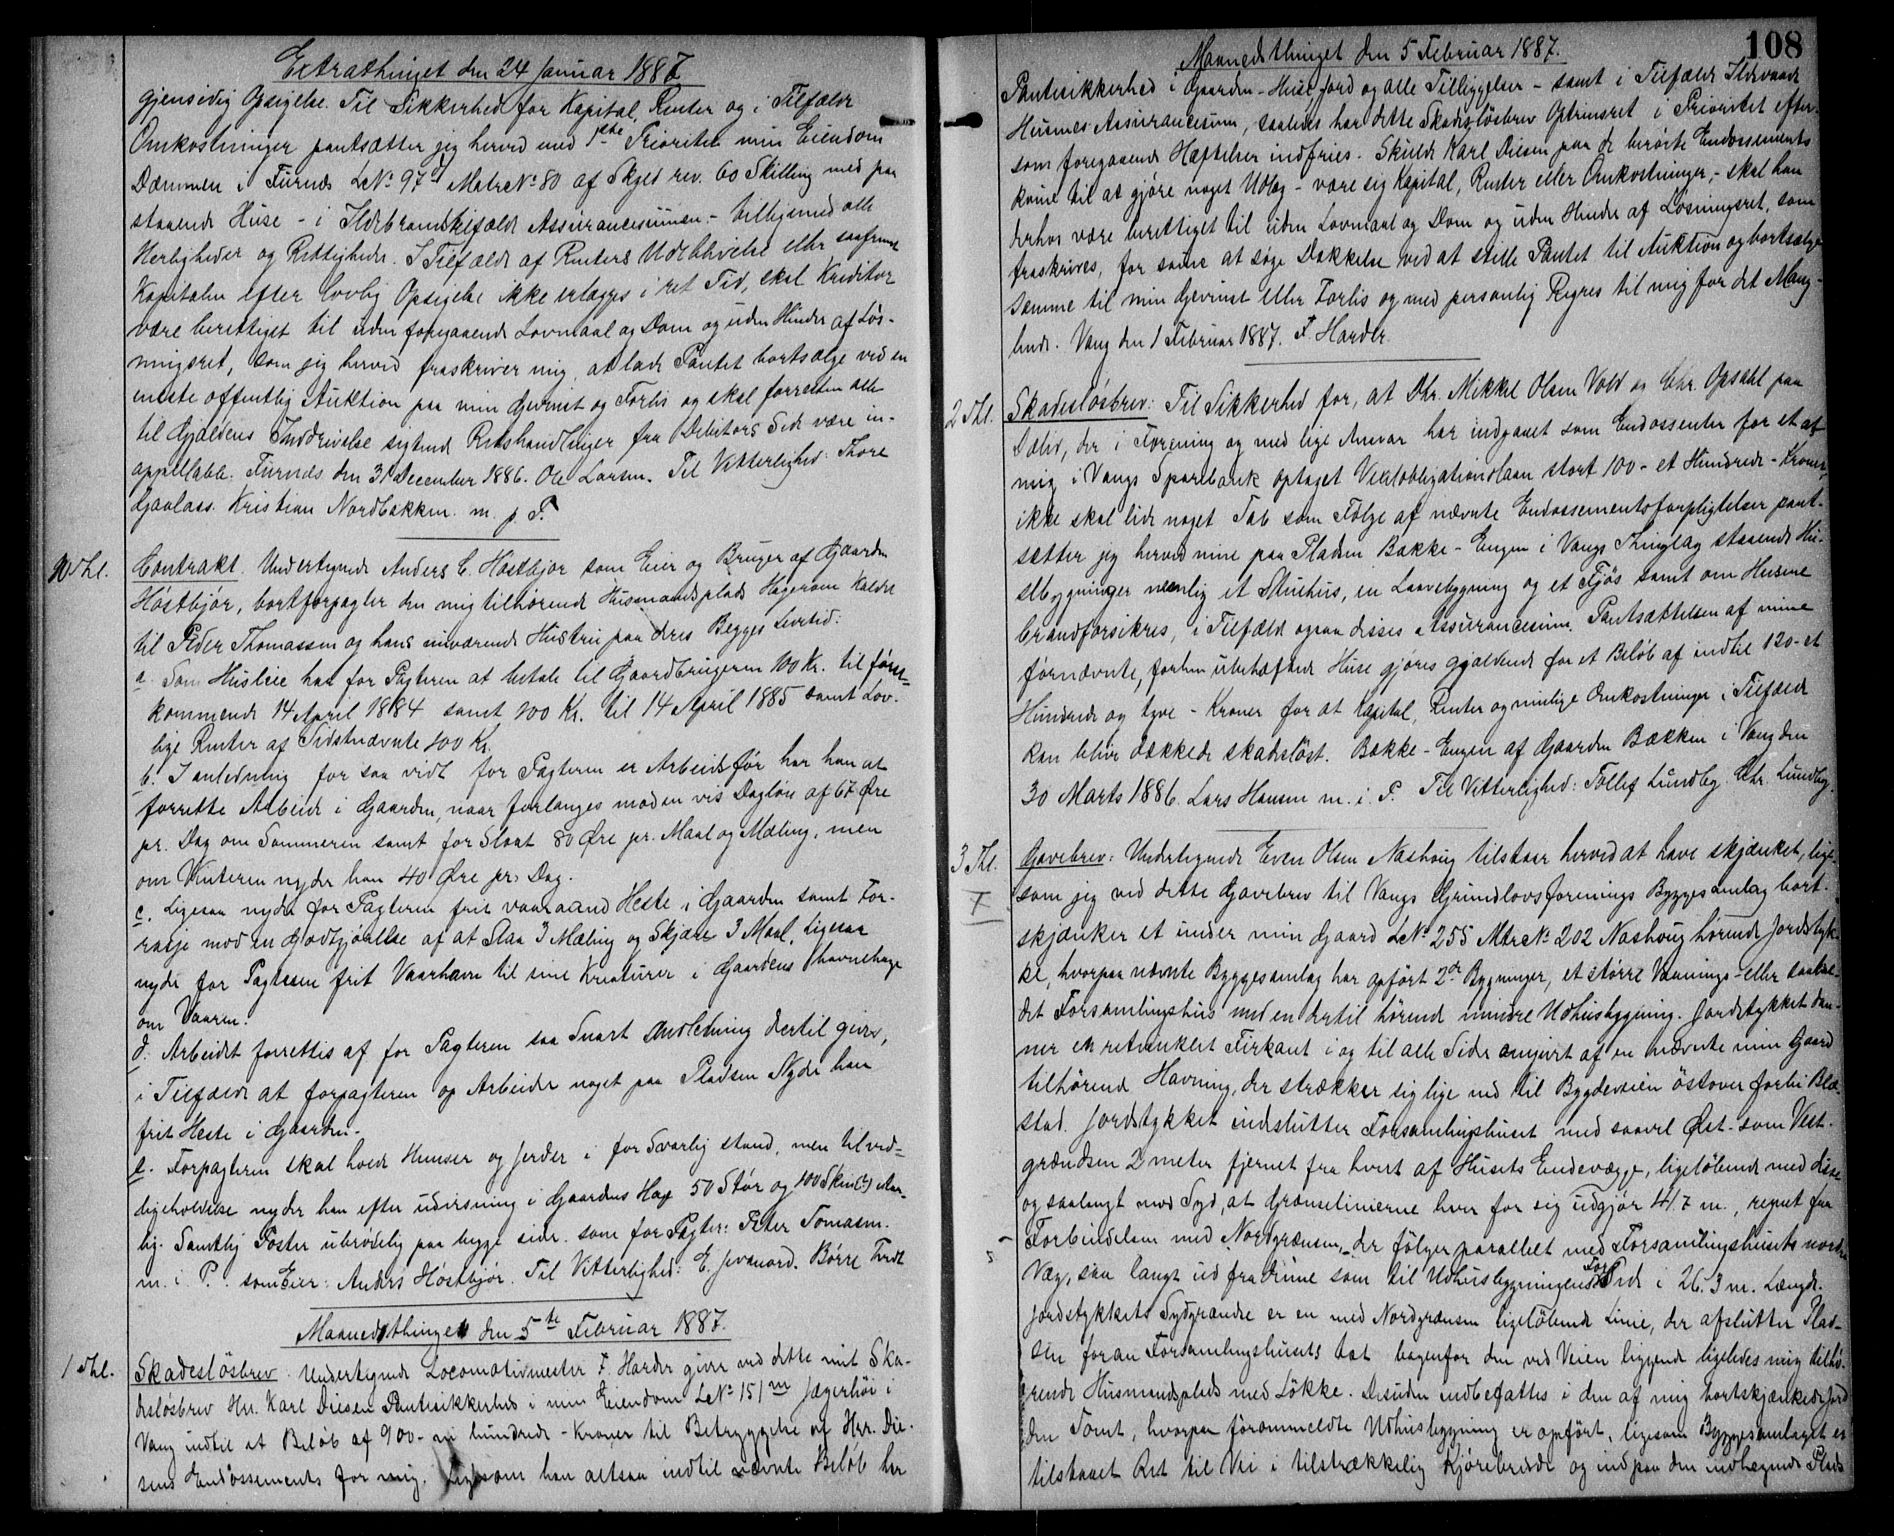 Extrathinget den 24 Januar 1887
gjensidig Opsigelse. Til Sikkerhed for Kapital, Renter og i Tilfælde
Omkostninger pantsætter jeg herved med 1ste Prioritet min Eiendom
Dæmmen i Furnæs LNo 97 MatrNo 80 af Skyld rev. 60 Skilling med paa
staaende Huse - i Ildebrandstilfælde Assurancesummen - tilligemed alle
Herligheder og Rettigheder. I Tilfælde af Renters Udeblivelse eller saafremt
Kapitalen efter lovlig Opsigelse ikke erlægges i ret Tid, skal Kreditor
være berettiget til uden foregaaende Lovmaal og Dom og uden Hinder af Løs-
ningsret, som jeg herved fraskriver mig, at lade Pantet bortsælge ved en
eneste offentlig Auktion paa min Gevinst og Forlis og skal forresten alle
til Gjældens Inddrivelse sigtende Retshandlinger fra Debitors Side være in-
appellable. Furnæs den 31 December 1886. Ole Larsen. Til Vitterlighed: Thore
Gaalaas. Kristian Nordbakken. m. p. P.
20 Thl. Contrakt. Undertegnede Anders C. Høstbjør som Eier og Bruger af Gaarden
Høstbjør, bortforpagter den mig tilhørende Husmandsplads Hagerom kaldet
til Peder Thomassen og hans nuværende Hustru paa deres Begges Levetid:
a. Som Husleie har for Pagteren at betale til Gaardbrugeren 100 Kr. til først-
kommende 14 April 1884 samt 100 Kr. til 14 April 1885 samt Lov-
lige Renter af Sidstnævnte 100 Kr.
b. I anledning for saa vidt for Pagteren er Arbeidsfør har han at
forrette Arbeide i Gaarden, naar forlanges mod en vis Dagløn af 67 Øre
pr. Dag om Sommeren samt for Slaat 80 Øre pr. Maal og Mæling, men
om Vinteren nyder han 40 Øre pr. Dag.
c. Ligesaa nyder for Pagteren frit vaaraand Heste i Gaarden samt For-
rasje mod en Godtgjørelse af at Slaa 3 Mæling og Skjære 3 Maal, Ligesaa
nyder for Pagteren frit Vaarhavn til sine Kreaturer i Gaardens havnehage
om Vaaren.
d. Arbeidet forrettes af for Pagteren saa Snart Anledning dertil gives,
i Tilfælde at forpagteren op Arbeider noget paa Pladsen Nyder han
frit Heste i Gaarden.
e. Forpagteren skal holde Huuser og Jerder i for Svarlig stand, men til ved-
ligeholdelse nyder han efter udvisning i Gaardens Hage 50 Stør og 100 Skier(?) Aar-
lig. Samtlig Poster ubrødelig paa begge sider. som for Pagter: Peter Tomasen.
m. i P. som Eier: Anders Høstbjør. Til Vitterlighed: E. Jevanord. Børre Tveit
Maanedsthinget den 5te Februar 1887.
1 Thl. Skadesløsbrev. Undertegnede Locomotivmester F. Harder giver ved dette mit Ska-
desløsbrev Hr. Karl Diesen Pantesikkerhed i min Eiendom LNo 151 m Jægerhøi i
Vang indtil et Beløb af 900 - ni hundrede - Kroner til Betryggelse af Hrr. Die-
sens Endossements for mig. Ligesom han altsaa indtil nævnte Beløb har
108
Maanedsthinget den 5 Februar 1887.
Pantesikkerhed i Gaarden - Huse, Jord og alle Tilliggelser - samt i Tilfælde Ildsvaade
Husenes Assurancesum, saaledes har dette Skadesløsbrev Optrinsret i Prioritet efter-
som foregaaende Hæftelser indfries. Skulde Karl Diesen paa de berørte Endossements
komme til at gjøre noget Udlæg - være sig Kapital, Renter eller Omkostninger, - skal han
derhos være berettiget til uden Lovmaal og Dom og uden Hinder af Løsningsret, som
fraskrives, for samme at søge Dækkelse ved at stille Pantet til Auktion og bortsælge
samme til min Gevinst eller Forlis og med personlig Regres til mig for det Mang-
lende. Vang den 1 Februar 1887. F. Harder.
2 Thl. Skadesløsbrev: Til Sikkerhed for, at Dhr. Mikkel Olsen Vold og Chr. Opsahl paa
Dælid, der i Forening og med lige Ansvar har indgaaet som Endossenter for et af
mig i Vangs Sparebank optaget Vexelobligationslaan stort 100 - et Hundrede - Kroner,
ikke skal lide noget Tab som Følge af nævnte Endossementsforpligtelser pant-
sætter jeg herved mine paa Pladsen Bakke-Engen i Vangs Thinglag staaende Hu-
sbygninger nemlig et Stuehus, en Laavebygning og et Fjøs samt om Husene
brandforsikres, i Tilfælde ogsaa disses Assurancesum. Pantsættelsen af mine
førnævnte, forhen ubehæftede Huse gjøres gjældende for et Beløb af indtil 120 - et
Hundrede og tyve - Kroner for at Kapital, Renter og mulige Omkostninger i Tilfælde
kan blive dækkede skadesløst. Bakke-Engen af Gaarden Bækken i Vang den
30 Marts 1886. Lars Hansen m. i. P. Til Vitterlighed: Tollef Lundby Chr. Lundby
3 Thl. Gavebrev: Undertegnede Even Olsen Nashoug tilstaar herved at have skjænket, lige-
som jeg ved dette Gavebrev til Vangs Grundlovsforenings Byggesamlag bort-
skjænker et under min Gaard LNo 255 MtrNo 202 Nashoug hørende Jordstyk-
ke, hvorpaa nævnte Byggesamlag har opført 2de Bygninger, et større Vaanings- eller saakal-
det Forsamlingshus med en hertil hørende mindre Udhusbygning. Jordstykket dan-
ner en retvinklet Firkant i og til alle Sider omgivet af en nævnte min Gaard
tilhørende Havning, der strækker sig lige ned til Bygdeveien østover forbi Blæ-
stad. Jordstykket indslutter Forsamlingshuset med saavel Øst- som Vest-
grændsen 2 meter fjernet fra hvert af Husets Endevægge, ligeløbende med disse
og saalangt mod Syd, at Grænselinierne hver for sig udgjør 41.7 m., regnet fra
Forbindelsen med Nordgrænsen, der følger parallelt med Forsamlingshusets nordre
Væg, saa langt ud fra denne som til Udhusbygningens For Side i 26.3 m. Længde.
Jordstykkets Sydgrændse er en med Nordgrænsen ligeløbende Linie, der afslutter Plad-
sen foran Forsamlingshuset tæt bagenfor den ved Veien liggende ligeledes mig tilhø-
rende Husmandsplads med Løkke. Desuden indbefattes i den af mig bortskjænkede Jord
den Tomt, hvorpaa føromemeldte Udhusbygning er opført, ligesom Byggesamlaget er
tilstaaet Ret til Vei i tilstrækkelig Kjørebredde og ind paa den indhegnede Plads